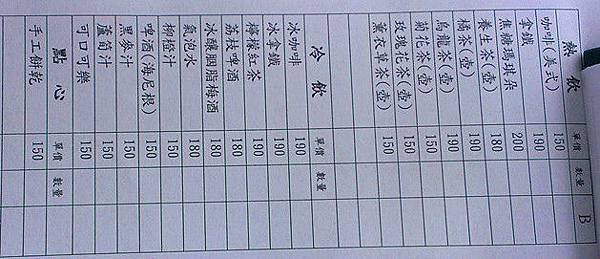 熱飲 單價 數量 B
咖啡(美式) 150
拿鐵 190
焦糖瑪琪朵 200
養生茶(壺) 180
橘茶(壺) 190
烏龍茶(壺) 190
菊花茶(壺) 150
玫瑰花茶(壺) 150
薰衣草茶(壺) 150
冷飲 單價 數量
冰咖啡 190
冰拿鐵 190
檸檬紅茶 190
荔枝啤酒 180
冰釀胭脂梅酒 180
氣泡水 180
柳橙汁 150
啤酒(海尼根) 150
黑麥汁 150
蘆筍汁 150
可口可樂 150
點心 單價 數量
手工餅乾 150